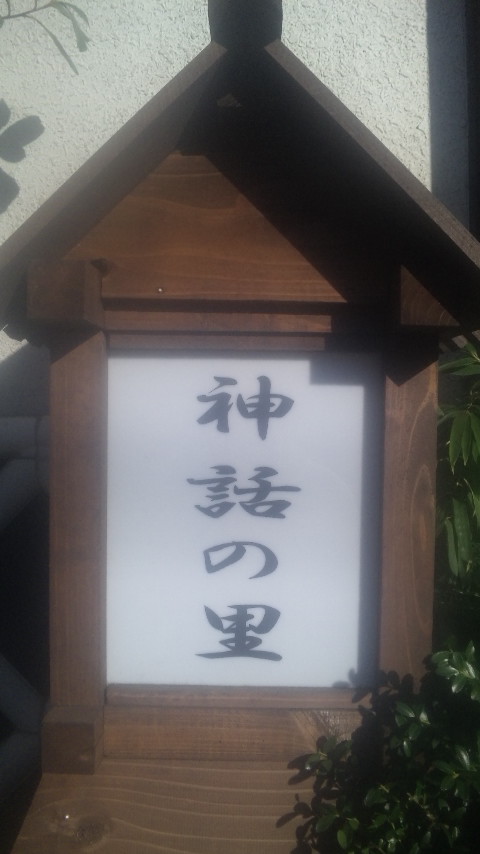 神話の里